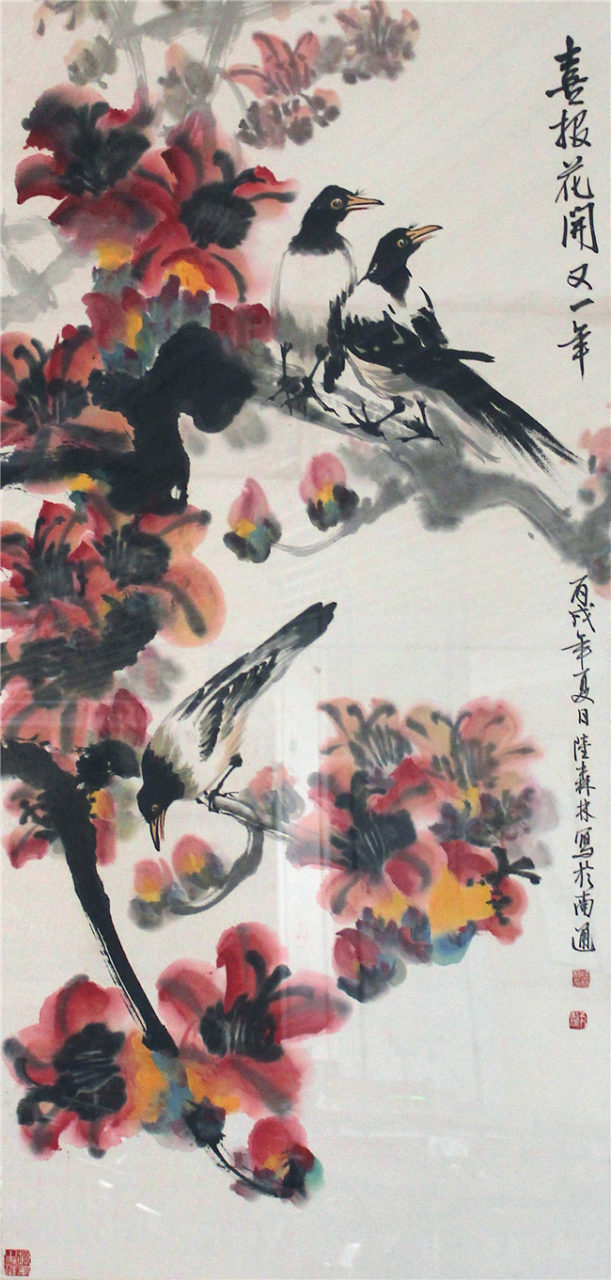 喜报花開又一年
丙戌年夏日陸森林寫於南通